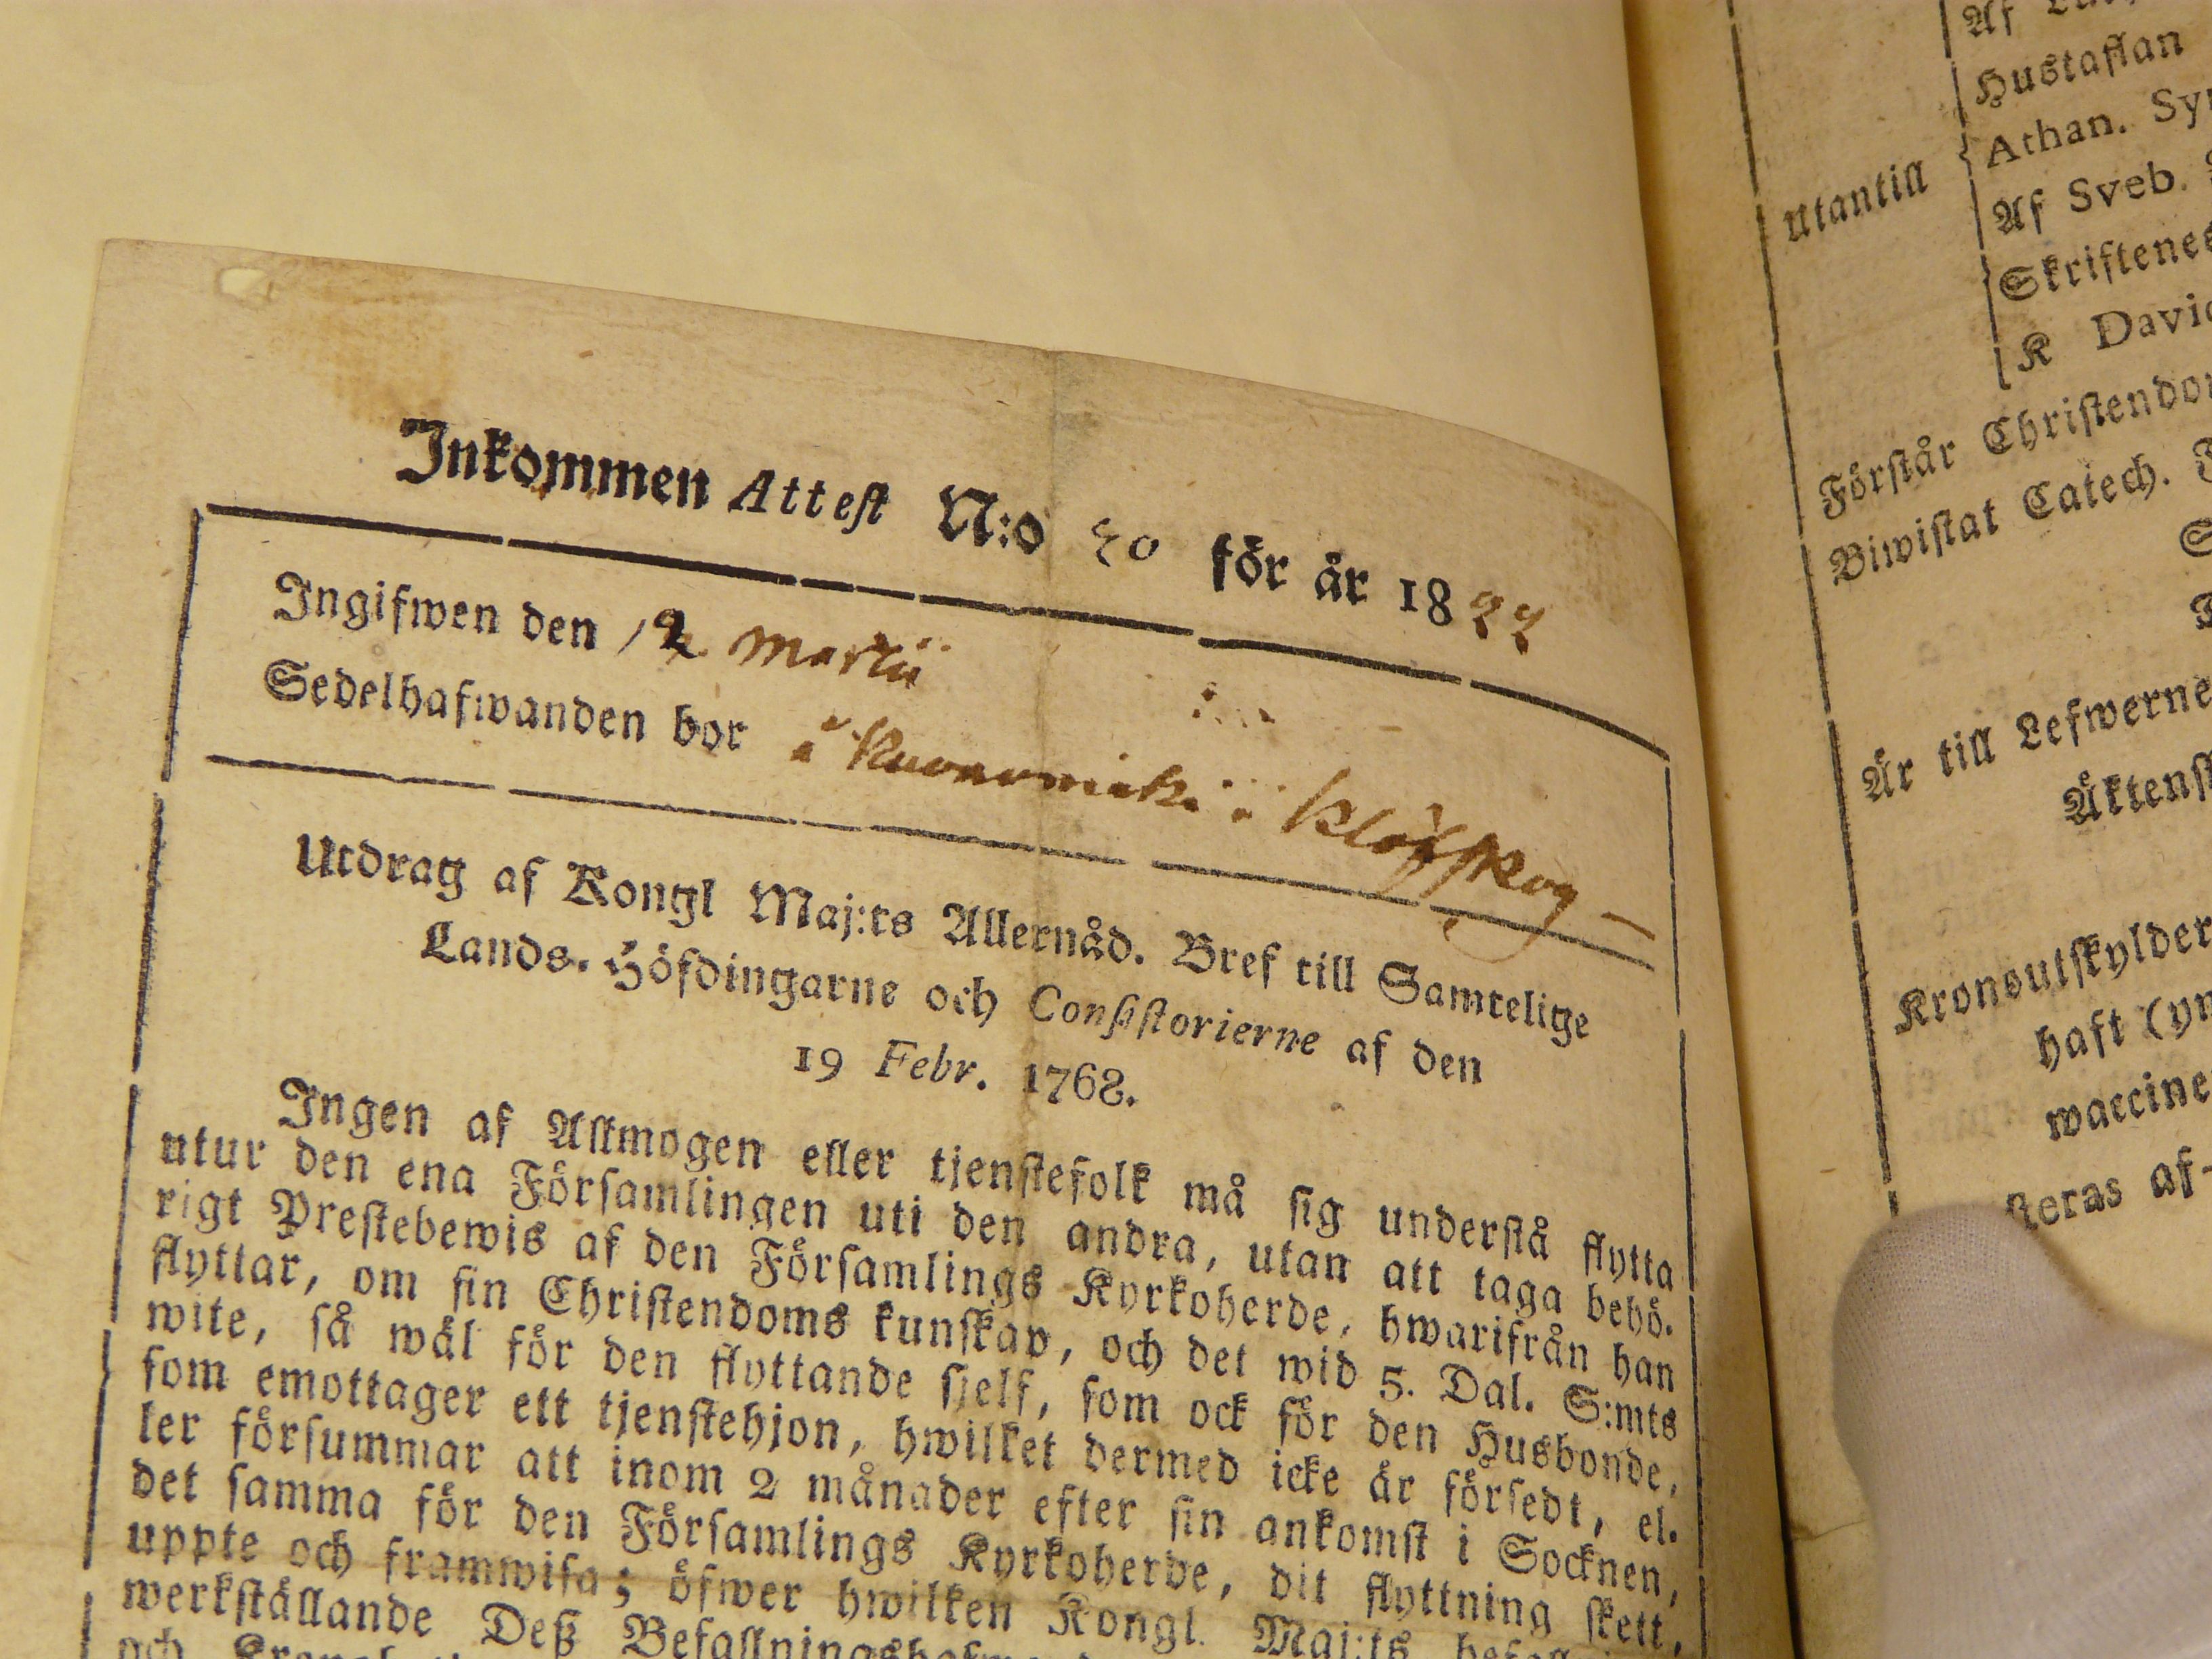 Inkommen Attest N:o 20 för år 1822
Ingifwen den 12 Martii
Sedelhafwanden bor i i Klöfskog
Utdrag af Kongl Maj:ts Allernåd. Bref till Samtelige
Lands-Höfdingarne och Consistorierne af den
19 Febr. 1768.
Ingen af Allmogen eller tjenstefolk må sig understå flytta
utur den ena Församlingen uti den andra, utan att taga behö-
rigt Prestebewis af den Församlings Kyrkoherde, hwarifrån han
flyttar, om sin Christendoms kunskap, och det wid 5. Dal. S:mts
wite, så wäl för den flyttande sjelf, som ock för den Husbonde,
som emottager ett tjenstehjon, hwilket dermed icke är försedt, el-
ler försummar att inom 2 månader efter sin ankomst i Socknen,
det samma för den Församlings Kyrkoherde, dit flyttning skett,
uppte och framwisa; öfwer hwilken Kongl. Maj:ts
werkställande Deß
och
Hustaflan
Athan.
Utantill
Af Sveb.
K David
Förstår
Biwistat Catech.
Är till Lefwerne
haft
af-